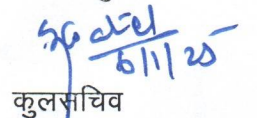 6/1/25
कुलसचिव